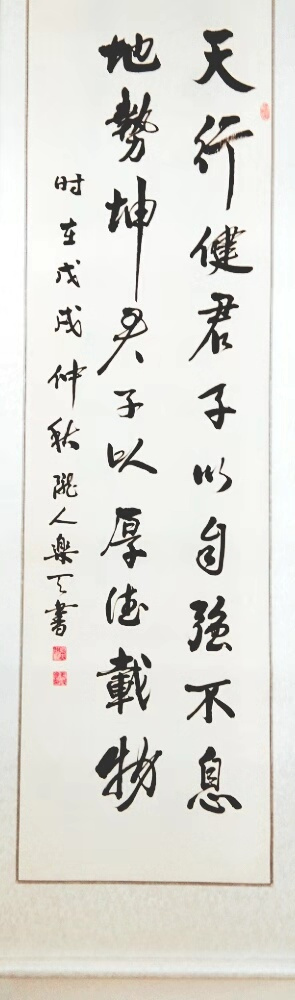 天行健君子以自強不息
地勢坤君子以厚德載物
时在戊戌仲秋隴人樂天書